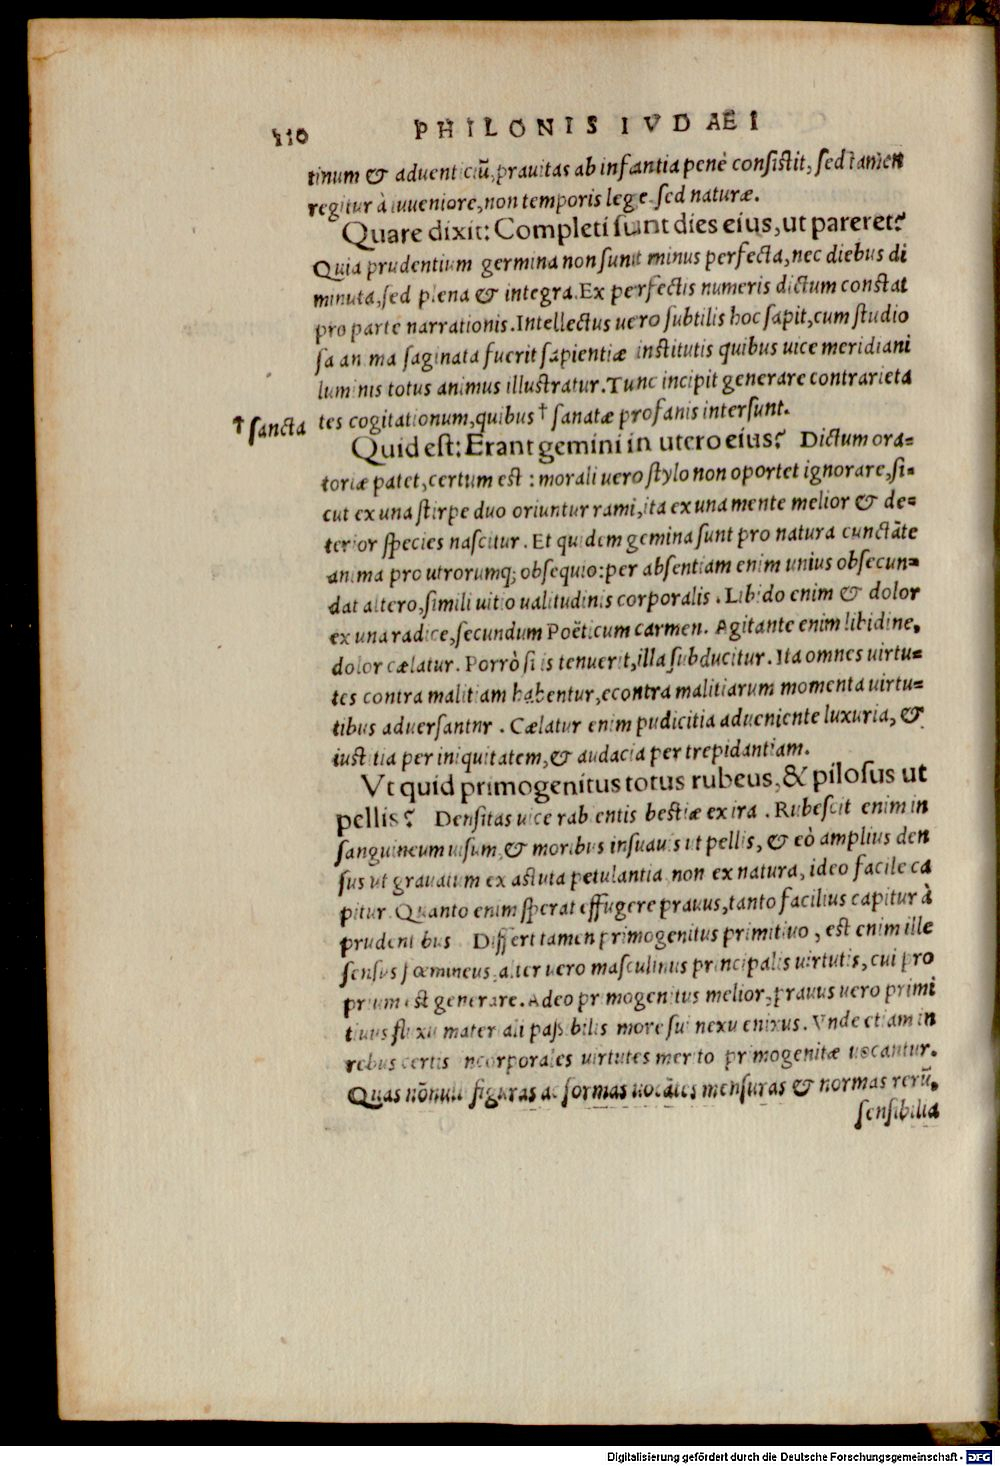 110 PHILONIS IVDAEI
tinum & aduenticiũ, prauitas ab infantia penè consistit, sed tamen
regitur à iuueniore, non temporis lege sed naturæ.
Quare dixit: Completi sunt dies eius, ut pareret?
Quia prudentium germina non sunt minus perfecta, nec diebus di
minuta, sed plena & integra. Ex perfectis numeris dictum constat
pro parte narrationis. Intellectus uero subtilis hoc sapit, cum studio
sa anima saginata fuerit sapientiæ institutis quibus uice meridiani
luminis totus animus illustratur. Tunc incipit generare contrarieta
† sancta tes cogitationum, quibus † sanatæ profanis intersunt.
Quid est: Erant gemini in utero eius? Dictum ora-
toriæ patet, certum est: morali uero stylo non oportet ignorare, si-
cut ex una stirpe duo oriuntur rami, ita ex una mente melior & de-
terior species nascitur. Et quidem gemina sunt pro natura cunctãte
anima pro utrorumq; obsequio: per absentiam enim unius obsecun-
dat altero, simili uitio ualitudinis corporalis. Libido enim & dolor
ex una radice, secundum Poëticum carmen. Agitante enim libidine,
dolor cælatur. Porrò si is tenuerit, illa subducitur. Ita omnes uirtu-
tes contra malitiam habentur, econtra malitiarum momenta uirtu-
tibus aduersantnr. Cælatur enim pudicitia adueniente luxuria, &
iustitia per iniquitatem, & audacia per trepidantiam.
Vt quid primogenitus totus rubeus, & pilosus ut
pellis? Densitas uice rabientis bestiæ ex ira. Rubescit enim in
sanguineum uisum, & moribus insuauis ut pellis, & eò amplius den
sus ut grauatum ex astuta petulantia non ex natura, ideo facile ca
pitur. Quanto enim sperat effugere prauus, tanto facilius capitur à
prudentibus. Differt tamen primogenitus primitiuo, est enim ille
sensus fœmineus, alter uero masculinus principalis uirtutis, cui pro
prium est generare. Adeo primogenitus melior, prauus uero primi
tiuus fluxu materiali passibilis more sui nexu enixus. Vnde etiam in
rebus certis incorporales uirtutes merito primogenitæ uocantur.
Quas nõnulli figuras ac formas uocãtes mensuras & normas rerũ,
sensibilia
Digitalisierung gefördert durch die Deutsche Forschungsgemeinschaft - DFG